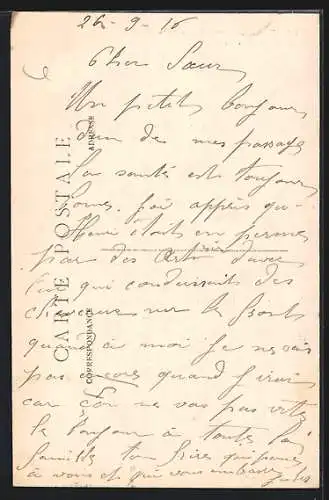 26-9-16
Cher Sœur
Un petit bonjour
d'un de mes passage
La santé est toujour
bonne. j'ai appris qu
Henri était en perme
par des
qui conduissit des
chevaux sur le front
quand à moi je ne sais
pas encore quand j'irai
car ne vas pas vite
le bonjour à toute la
famille ton frère qui pense
à vous et qui vous embrasse
Jules
CARTE POSTALE
CORRESPONDANCE
ADRESSE